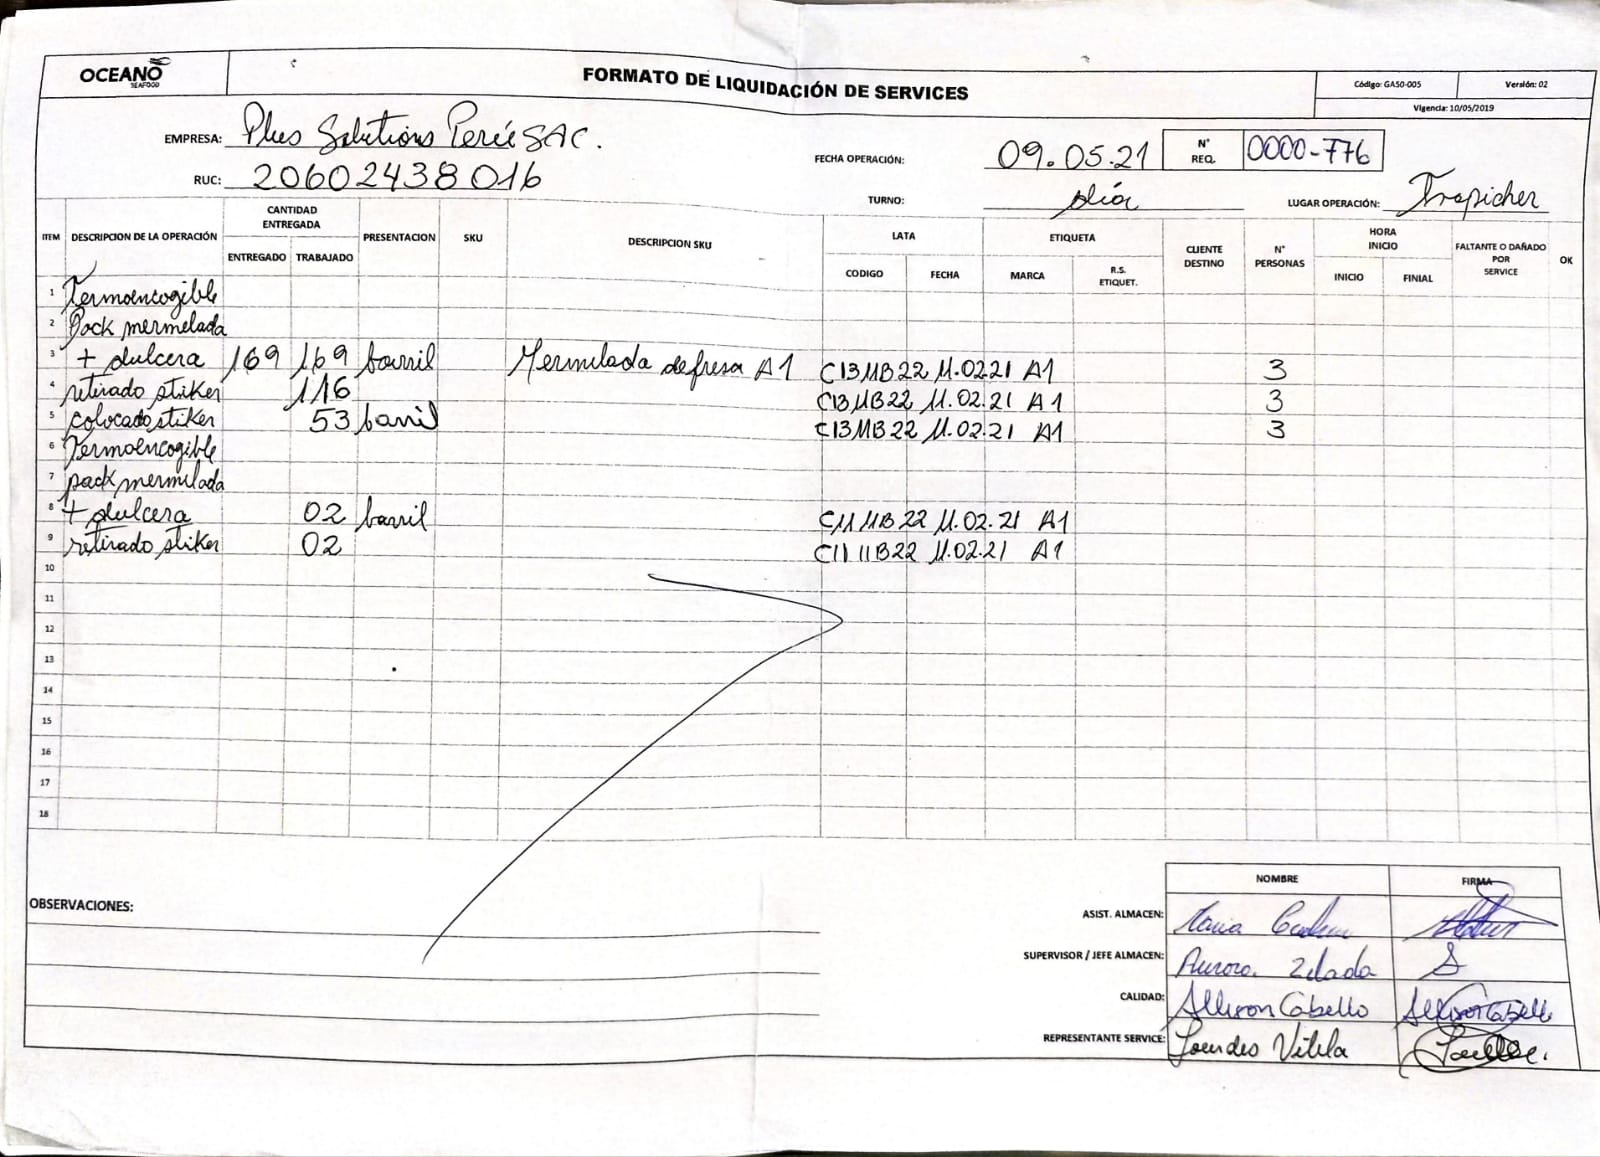 OCEANO
SEAFOOD
FORMATO DE LIQUIDACIÓN DE SERVICES
Código: GA50-005
Versión: 02
Vigencia: 10/05/2019
EMPRESA: Plus Solutions Perú SAC.
FECHA OPERACIÓN: 09.05.21
N° REQ. 0000-776
RUC: 20602438016
TURNO: día
LUGAR OPERACIÓN: Trapicher
ITEM DESCRIPCION DE LA OPERACIÓN CANTIDAD ENTREGADA PRESENTACION SKU DESCRIPCION SKU LATA ETIQUETA CLIENTE DESTINO N° PERSONAS HORA INICIO FALTANTE O DAÑADO POR SERVICE OK
ENTREGADO TRABAJADO CODIGO FECHA MARCA R.S. ETIQUET. INICIO FINIAL
1 Termoencogible
2 Pack mermelada
3 + dulcera 169 169 barril Mermilada de fresa A1 C13MB22 11.02.21 A1 3
4 retirado stiker 116 C13MB22 11.02.21 A1 3
5 colocado stiker 53 barril C13MB22 11.02.21 A1 3
6 Termoencogible
7 pack mermilada
8 + dulcera 02 barril C11MB22 11.02.21 A1
9 retirado stiker 02 C1111B22 11.02.21 A1
10
11
12
13
14
15
16
17
18
OBSERVACIONES:
NOMBRE FIRMA
ASIST. ALMACEN: Maria
SUPERVISOR / JEFE ALMACEN: Aurora Zelada
CALIDAD: Allison Cabello Allison Cabello
REPRESENTANTE SERVICE: Lourdes Vilela